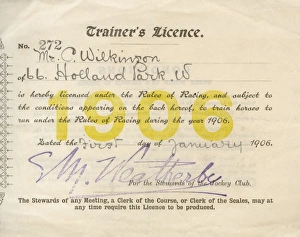 Trainer's Licence.
No. 272
Mr. C. Wilkinson
of 66. Holland Park. W
is hereby licensed under the Rules of Racing, and subject to
the conditions appearing on the back hereof, to train horses to
run under the Rules of Racing during the year 1906.
1906
Dated the First day of January 1906.
E M Weatherby
For the Stewards of the Jockey Club.
The Stewards of any Meeting, a Clerk of the Course, or Clerk of the Scales, may at
any time require this Licence to be produced.